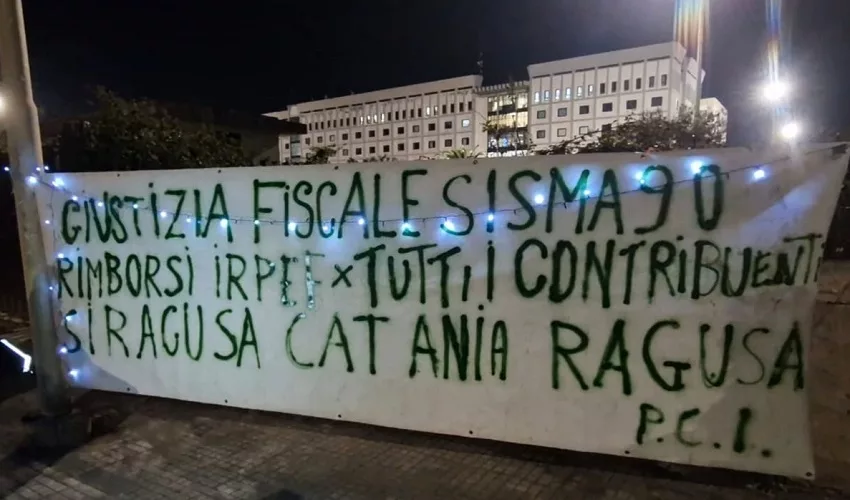 GIUSTIZIA FISCALE SISMA 90
RIMBORSI IRPEF x TUTTI I CONTRIBUENTI
SIRACUSA CATANIA RAGUSA
P.C.I.